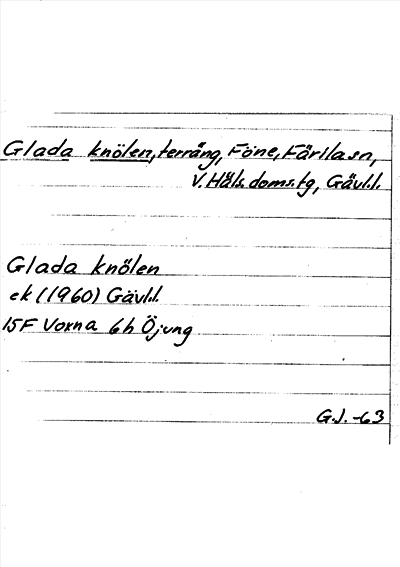 Glada knölen, terräng, Föne, Färila sn,
V. Häls. doms.tg, Gävl.l.
Glada knölen
ek (1960) Gävl.l.
15F Voxna 6h Öjung
G.J. -63